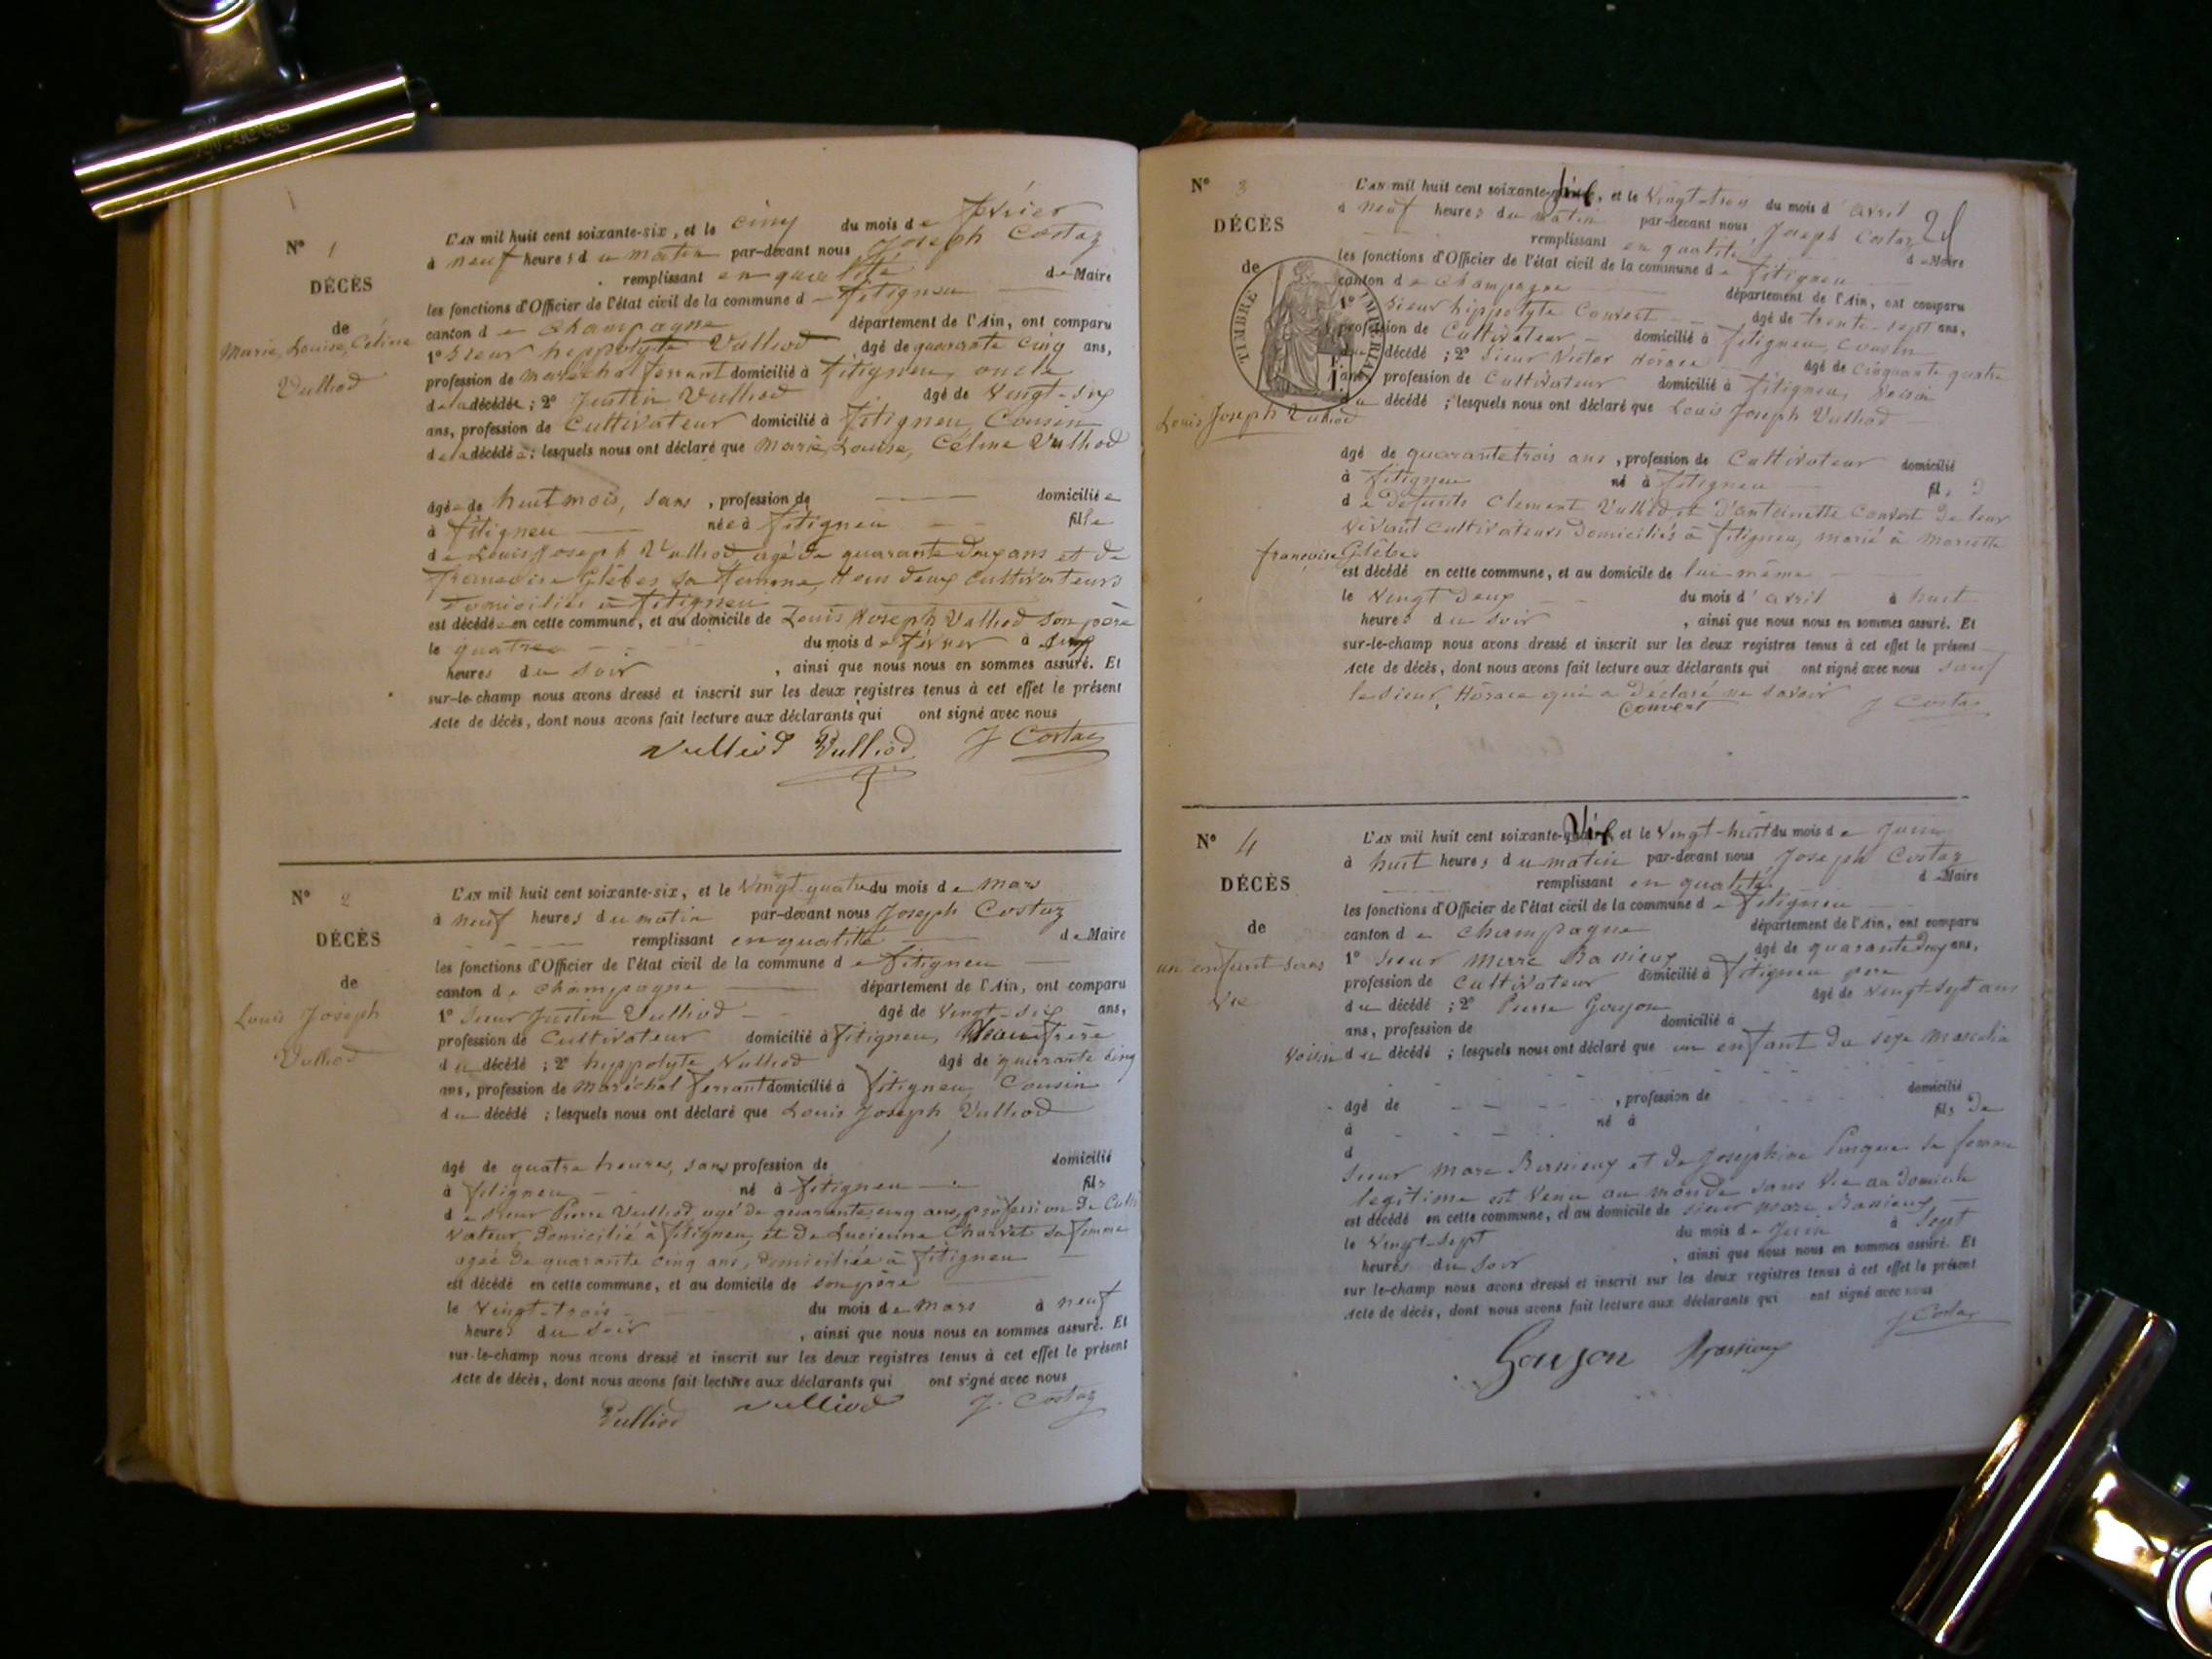 N° 1
DÉCÈS
de
Marie, Louise, Céline
Vulliod
L'AN mil huit cent soixante-six, et le cinq du mois de février
à neuf heures du matin par-devant nous Joseph Costaz
remplissant en qualité de Maire
les fonctions d'Officier de l'état civil de la commune de fitignieu
canton de Champagne département de l'Ain, ont comparu
1° Sieur hippolyte Vulliod âgé de quarante cinq ans,
profession de maréchal ferrant domicilié à fitigneu, oncle
de la décédée ; 2° Justin Vulliod âgé de Vingt-six
ans, profession de Cultivateur domicilié à fitigneu, Cousin
de la décédée ; lesquels nous ont déclaré que Marie, Louise, Céline Vulliod
âgée de huit mois, sans , profession de domiciliée
à fitigneu née à fitigneu fille
de Louis Joseph Vulliod agé de quarante deux ans et de
francoise Glèbes sa femme, tous deux cultivateurs
domiciliés à fitigneu
est décédée en cette commune, et au domicile de Louis Joseph Vulliod son père
le quatre du mois de février à cinq
heures du soir , ainsi que nous nous en sommes assuré. Et
sur-le-champ nous avons dressé et inscrit sur les deux registres tenus à cet effet le présent
Acte de décès, dont nous avons fait lecture aux déclarants qui ont signé avec nous
Vulliod Vulliod J Costaz
N° 2
DÉCÈS
de
Louis Joseph
Vulliod
L'AN mil huit cent soixante-six, et le Vingt-quatre du mois de Mars
à neuf heures du matin par-devant nous Joseph Costaz
remplissant en qualité de Maire
les fonctions d'Officier de l'état civil de la commune de fitigneu
canton de Champagne département de l'Ain, ont comparu
1° Sieur Justin Vulliod âgé de Vingt-six ans,
profession de Cultivateur domicilié à fitigneu, Beau frère
du décédé ; 2° hyppolyte Vulliod âgé de quarante cinq
ans, profession de Maréchal ferrant domicilié à fitigneu, Cousin
du décédé ; lesquels nous ont déclaré que Louis Joseph Vulliod
âgé de quatre heures, sans profession de domicilié
à fitigneu né à fitigneu fils
de Sieur Pierre Vulliod agé de quarante cinq ans, profession de Culti
vateur, domicilié à fitigneu, et de Lucienne Charvet sa femme
agée de quarante cinq ans, domiciliée à fitigneu
est décédé en cette commune, et au domicile de son père
le Vingt-trois du mois de Mars à neuf
heures du soir , ainsi que nous nous en sommes assuré. Et
sur-le-champ nous avons dressé et inscrit sur les deux registres tenus à cet effet le présent
Acte de décès, dont nous avons fait lecture aux déclarants qui ont signé avec nous
Vulliod Vulliod J. Costaz
N° 3
DÉCÈS
de
TIMBRE IMPÉRIAL
Louis Joseph Vulliod
L'AN mil huit cent soixante-six, et le Vingt-trois du mois d'avril
à neuf heures du matin par-devant nous Joseph Costaz
remplissant en qualité de Maire
les fonctions d'Officier de l'état civil de la commune de fitigneu
canton de Champagne département de l'Ain, ont comparu
1° Sieur hippolyte Convert âgé de trente-sept ans,
profession de Cultivateur domicilié à fitigneu, Cousin
du décédé ; 2° Sieur Victor Horace âgé de Cinquante quatre
ans, profession de Cultivateur domicilié à fitigneu, Voisin
du décédé ; lesquels nous ont déclaré que Louis Joseph Vulliod
âgé de quarante trois ans , profession de Cultivateur domicilié
à fitigneu né à fitigneu fils
de défunts Clement Vulliod et d'antoinette Convert de leur
vivant Cultivateurs Domiciliés à fitigneu, marié à Mariette
françoise Glèbes
est décédé en cette commune, et au domicile de lui-même
le Vingt deux du mois d'avril à huit
heures du soir , ainsi que nous nous en sommes assuré. Et
sur-le-champ nous avons dressé et inscrit sur les deux registres tenus à cet effet le présent
Acte de décès, dont nous avons fait lecture aux déclarants qui ont signé avec nous sauf
le sieur, Horace qui a déclaré ne savoir
Convert J Costaz
N° 4
DÉCÈS
de
un enfant sans
vie
L'AN mil huit cent soixante-six et le Vingt-huit du mois de Juin
à huit heures du matin par-devant nous Joseph Costaz
remplissant en qualité de Maire
les fonctions d'Officier de l'état civil de la commune de fitigneu
canton de Champagne département de l'Ain, ont comparu
1° Sieur Marc âgé de quarante deux ans,
profession de Cultivateur domicilié à fitigneu père
du décédé ; 2° Pierre Goujon âgé de Vingt-sept ans
ans, profession de domicilié à
Voisin du décédé ; lesquels nous ont déclaré que un enfant du sexe Masculin
âgé de , profession de domicilié
à né à fils de
d
Sieur Marc et de Joséphine sa femme
legitime est Venu au monde sans Vie au Domicile
est décédé en cette commune, et au domicile de sieur Marc
le Vingt-sept du mois de Juin à Sept
heures du Soir , ainsi que nous nous en sommes assuré. Et
sur le-champ nous avons dressé et inscrit sur les deux registres tenus à cet effet le présent
Acte de décès, dont nous avons fait lecture aux déclarants qui ont signé avec nous
Goujon J Costaz